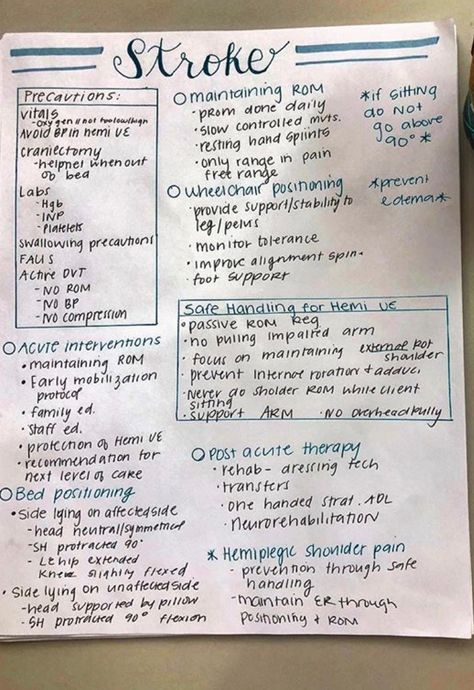 Stroke
Precautions:
vitals
-oxygen is not too low/high
Avoid BP in hemi UE
craniectomy
-helmet when out
of bed
Labs
- Hgb
- INP
- Platelets
swallowing precautions
FALLS
Active DVT
- NO ROM
- NO BP
- NO compression
maintaining ROM
• prom done daily
• slow controlled mvts.
• resting hand splints
• only range in pain
free range
*if sitting
do not
go above
90°*
Wheelchair positioning
• provide support/stability to
leg/pelvis
• monitor tolerance
• improve alignment spin-
foot support
*prevent
edema*
Safe Handling for Hemi UE
• passive ROM
• no pulling impaired arm
• focus on maintaining external rot
shoulder
• prevent internal rotation + adduc
• Never do sholder ROM while client
sitting
• support ARM • No overhead pully
Acute interventions
• maintaining ROM
• Early mobilization
protocol
• family ed.
• Staff ed.
• protection of Hemi UE
• recommendation for
next level of care
Bed positioning
• Side lying on affected side
- head neutral/symmetrical
- SH protracted 90°
- LE hip extended
Knee slightly flexed
• Side lying on unaffected side
- head supported by pillow
- SH protracted 90° flexion
Post acute therapy
• rehab- dressing tech
• transfers
• one handed strat. ADL
• neurorehabilitation
* Hemiplegic shoulder pain
- prevention through safe
handling
- maintain ER through
positioning + ROM